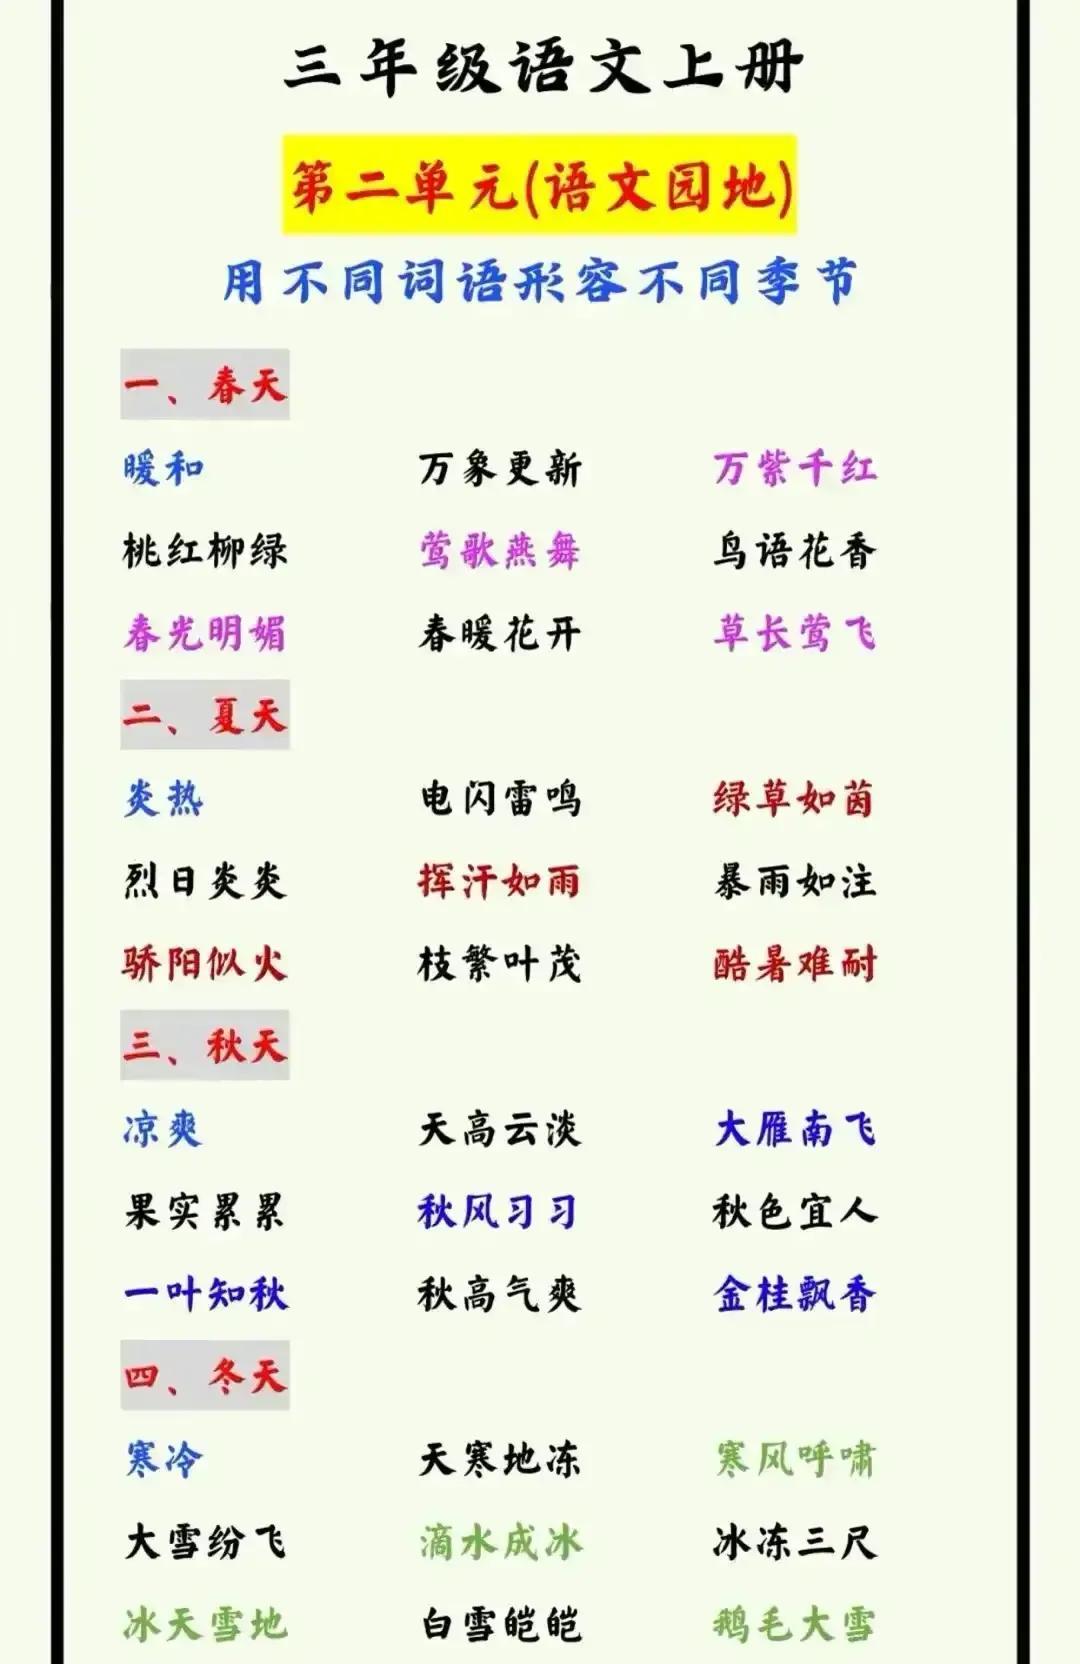 三年级语文上册
第二单元(语文园地)
用不同词语形容不同季节
一、春天
暖和 万象更新 万紫千红
桃红柳绿 莺歌燕舞 鸟语花香
春光明媚 春暖花开 草长莺飞
二、夏天
炎热 电闪雷鸣 绿草如茵
烈日炎炎 挥汗如雨 暴雨如注
骄阳似火 枝繁叶茂 酷暑难耐
三、秋天
凉爽 天高云淡 大雁南飞
果实累累 秋风习习 秋色宜人
一叶知秋 秋高气爽 金桂飘香
四、冬天
寒冷 天寒地冻 寒风呼啸
大雪纷飞 滴水成冰 冰冻三尺
冰天雪地 白雪皑皑 鹅毛大雪